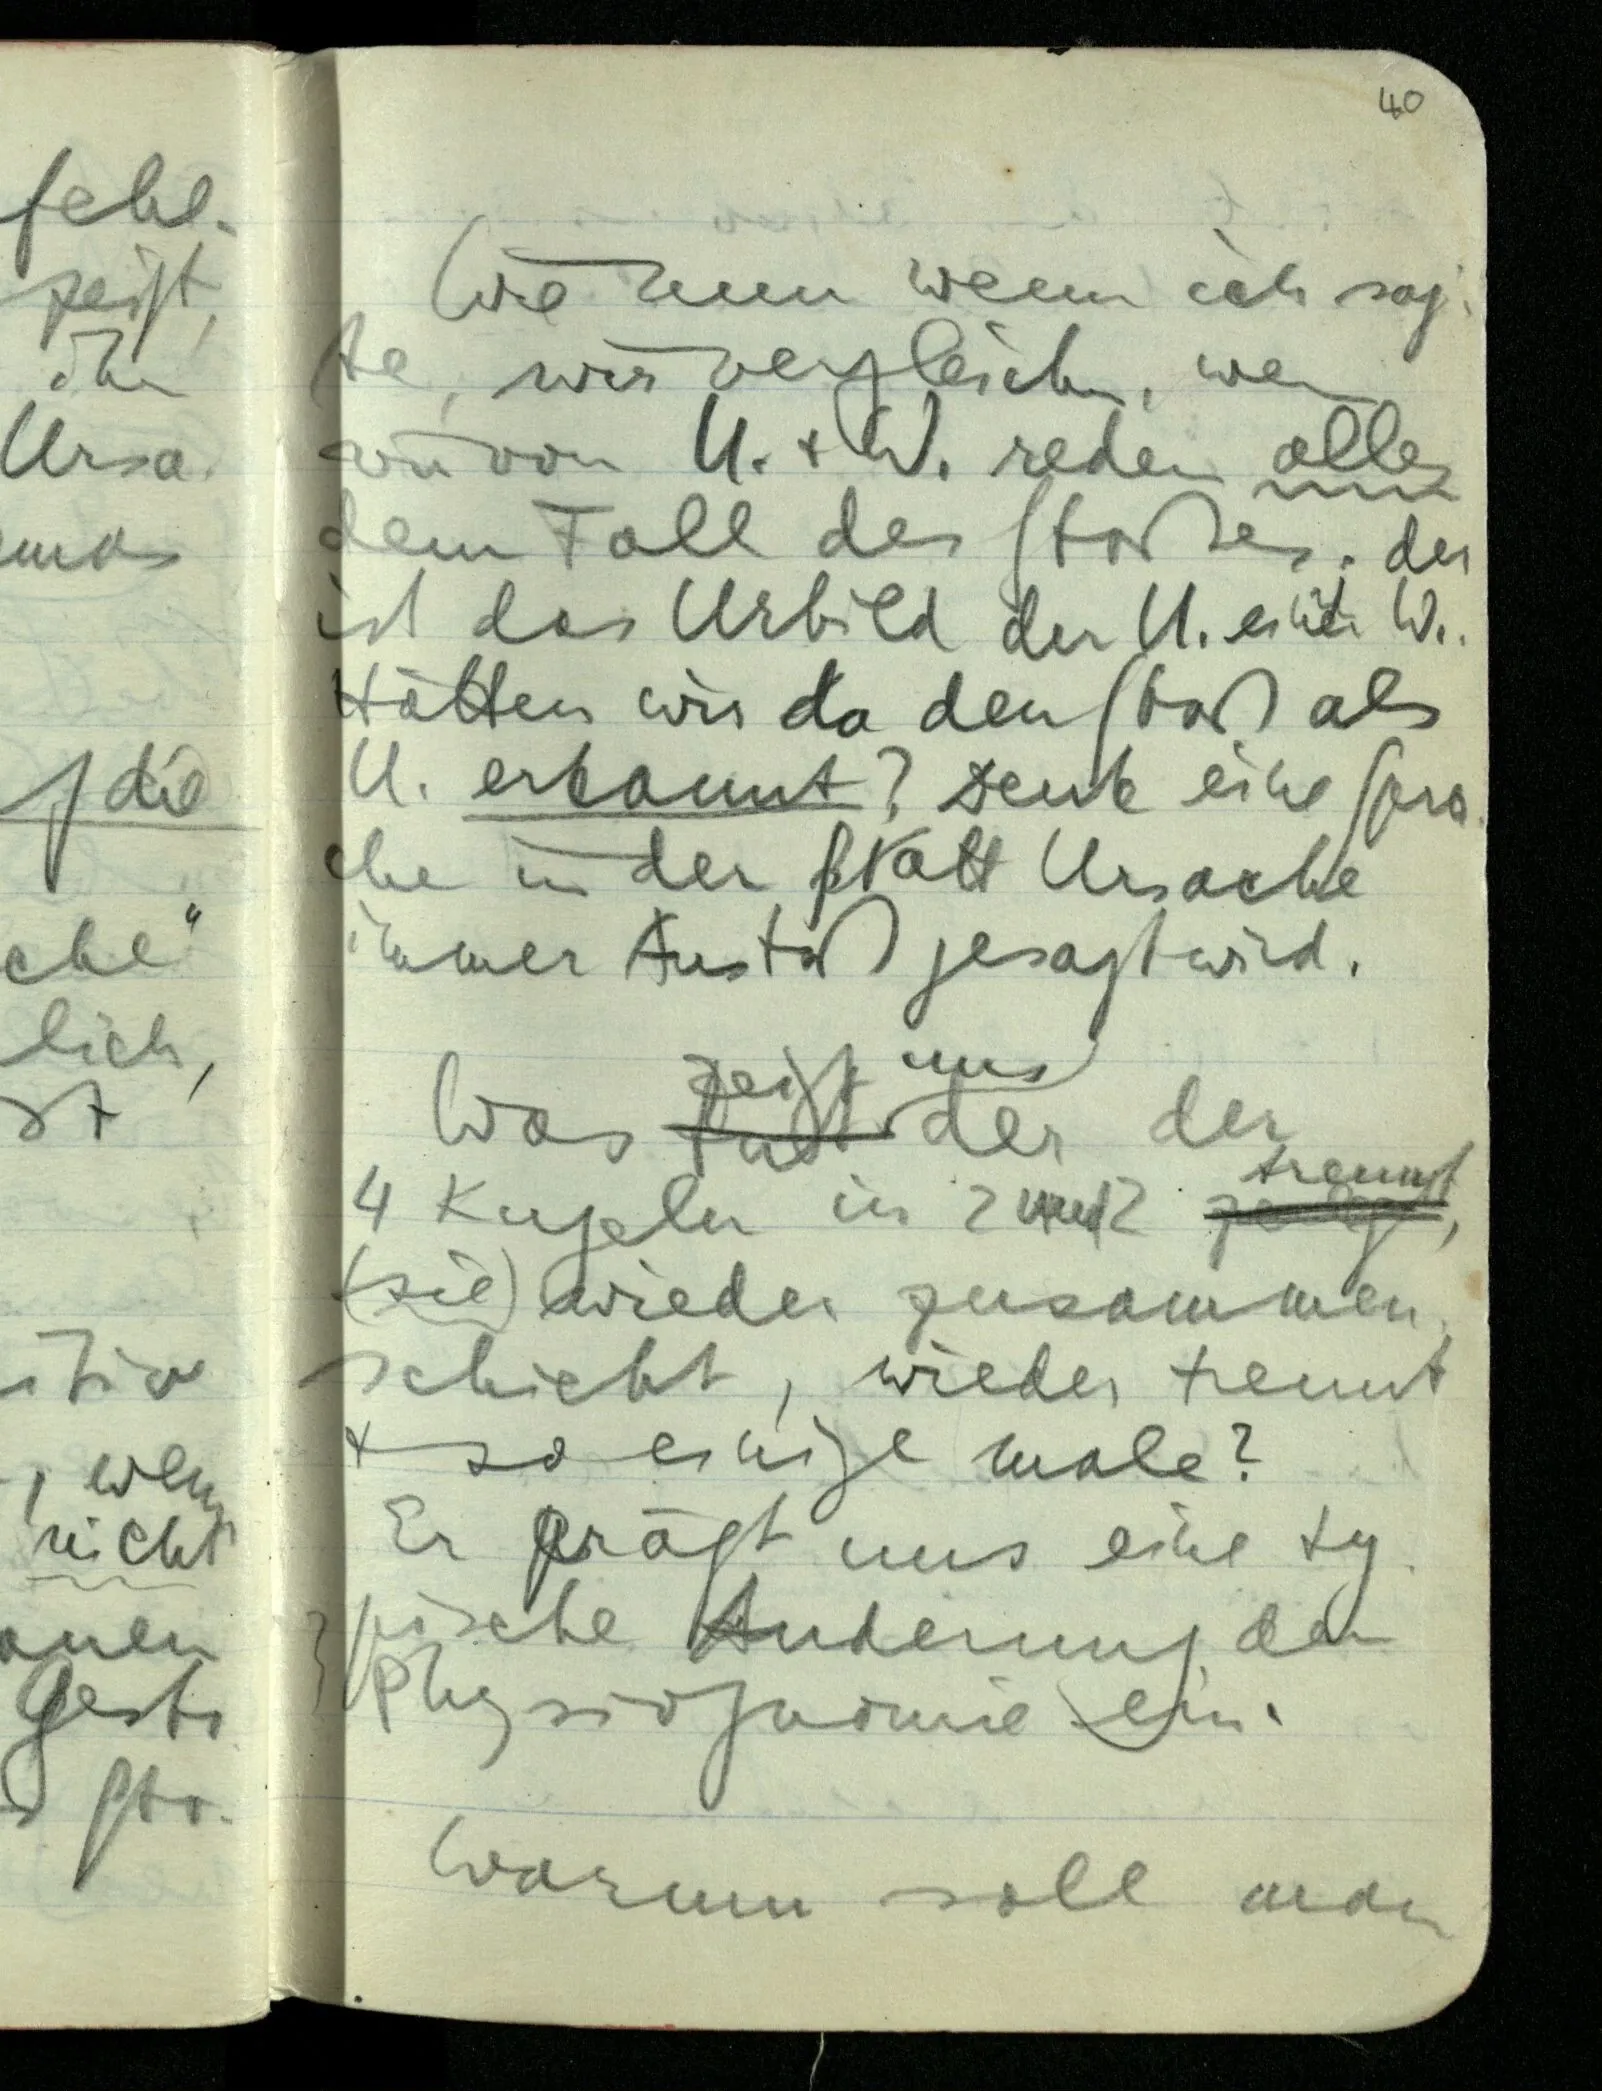 fehl-
zeigt,
ihr
Ursa-
die
che"
lich,
, wenn
nicht
Gesti-
sto-
40
Wie nun wenn ich sag-
te, wir vergleichen, wenn
wir von U. + W. reden alles
dem Fall des Stoßes. der
ist das Urbild der U. einer W..
Hätten wir da den Stoß als
U. erkannt? Denk eine Spra-
che in der statt Ursache
immer Anstoß gesagt wird.
zeigt uns
Was tut der der
trennt
4 Kugeln in 2 und 2 zerlegt,
(sie) wieder zusammen-
schiebt, wieder trennt
+ so einige male?
Er prägt uns eine ty-
pische Änderung der
Physiognomie ein.
Warum soll man